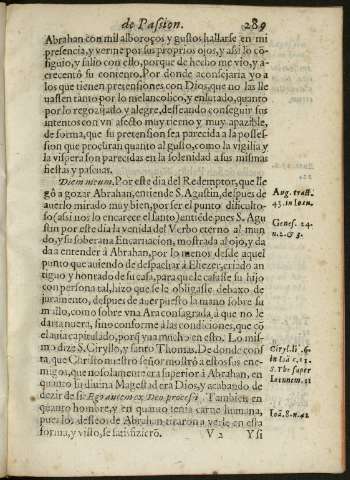 de Passion. 289
Abrahan con mil alboroços y gustos hallarse en mi
presencia, y verme por sus proprios ojos, y assi lo cõ-
siguio, y salio con ello, porque de hecho me vio, y a-
crecentò su contento. Por donde aconsejaria yo a
los que tienen pretensiones con Dios, que no las lle
uassen tanto por lo melancolico, y enlutado, quanto
por lo regozijado y alegre, desseando conseguir sus
intentos con vn afecto muy tierno y muy apazible,
de forma, que su pretension sea parecida a la posses-
sion que procuran quanto al gusto, como la vigilia y
la vispera son parecidas en la solenidad a sus mismas
fiestas y pascuas.
Diem meum. Por este dia del Redemptor, que lle
gò a gozar Abrahan, entiende S. Agustin, despues de
auerlo mirado muy bien, por ser el punto dificulto-
so (assi nos lo encarece el santo) antiẽde pues S. Agu
stin por este dia la venida del Verbo eterno al mun
do, y su soberana Encarnacion, mostrada al ojo, y da
da a entender à Abrahan, por lo menos desde aquel
punto que auiendo de despachar à Eliezer, criado an
tiguo y honrado de su casa, para que le casasse su hijo
con persona tal, hizo que se le obligasse debaxo de
juramento, despues de auer puesto la mano sobre su
muslo, como sobre vna Ara consagrada, à que no le
daria nuera, sino conforme à las condiciones, que cõ
el auia capitulado, porq̃ yua mucho en esto. Lo mis-
mo dize S. Cyrillo, y santo Thomas. De donde cons
ta, que Christo nuestro Señor mostrò a estos sus ene-
migos, que no solamente era superior à Abrahan, en
quanto su diuina Magestad era Dios, y acabando de
dezir de si: Ego autem ex Deo processi. Tambien en
quanto hombre, y en quanto tenia carne humana,
pues los desseos de Abrahan tirauan a verle en esta
forma, y visto, se satisfizierõ. V 2 Y si
Aug. tract.
43. in Ioan.
Genes. 24.
n. 2. & 3.
Ciryl. li. 6.
in Ioã. c. 11.
S. Tho. super
Ioã. 8. n. 42